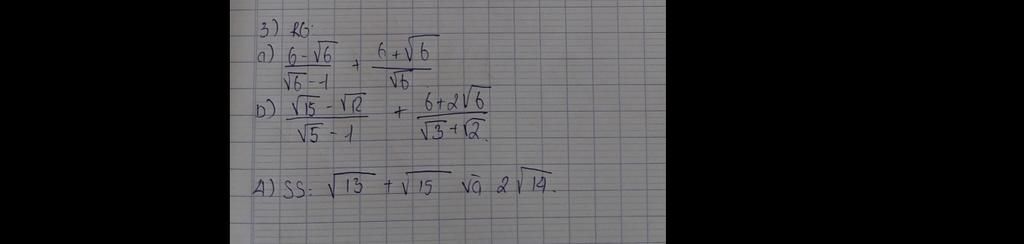 3) RG:
a) (6-√6)/(√6-1) + (6+√6)/√6
b) (√15-√12)/(√5-1) + (6+2√6)/(√3+√2)
4) SS: √13 + √15 và 2√14.